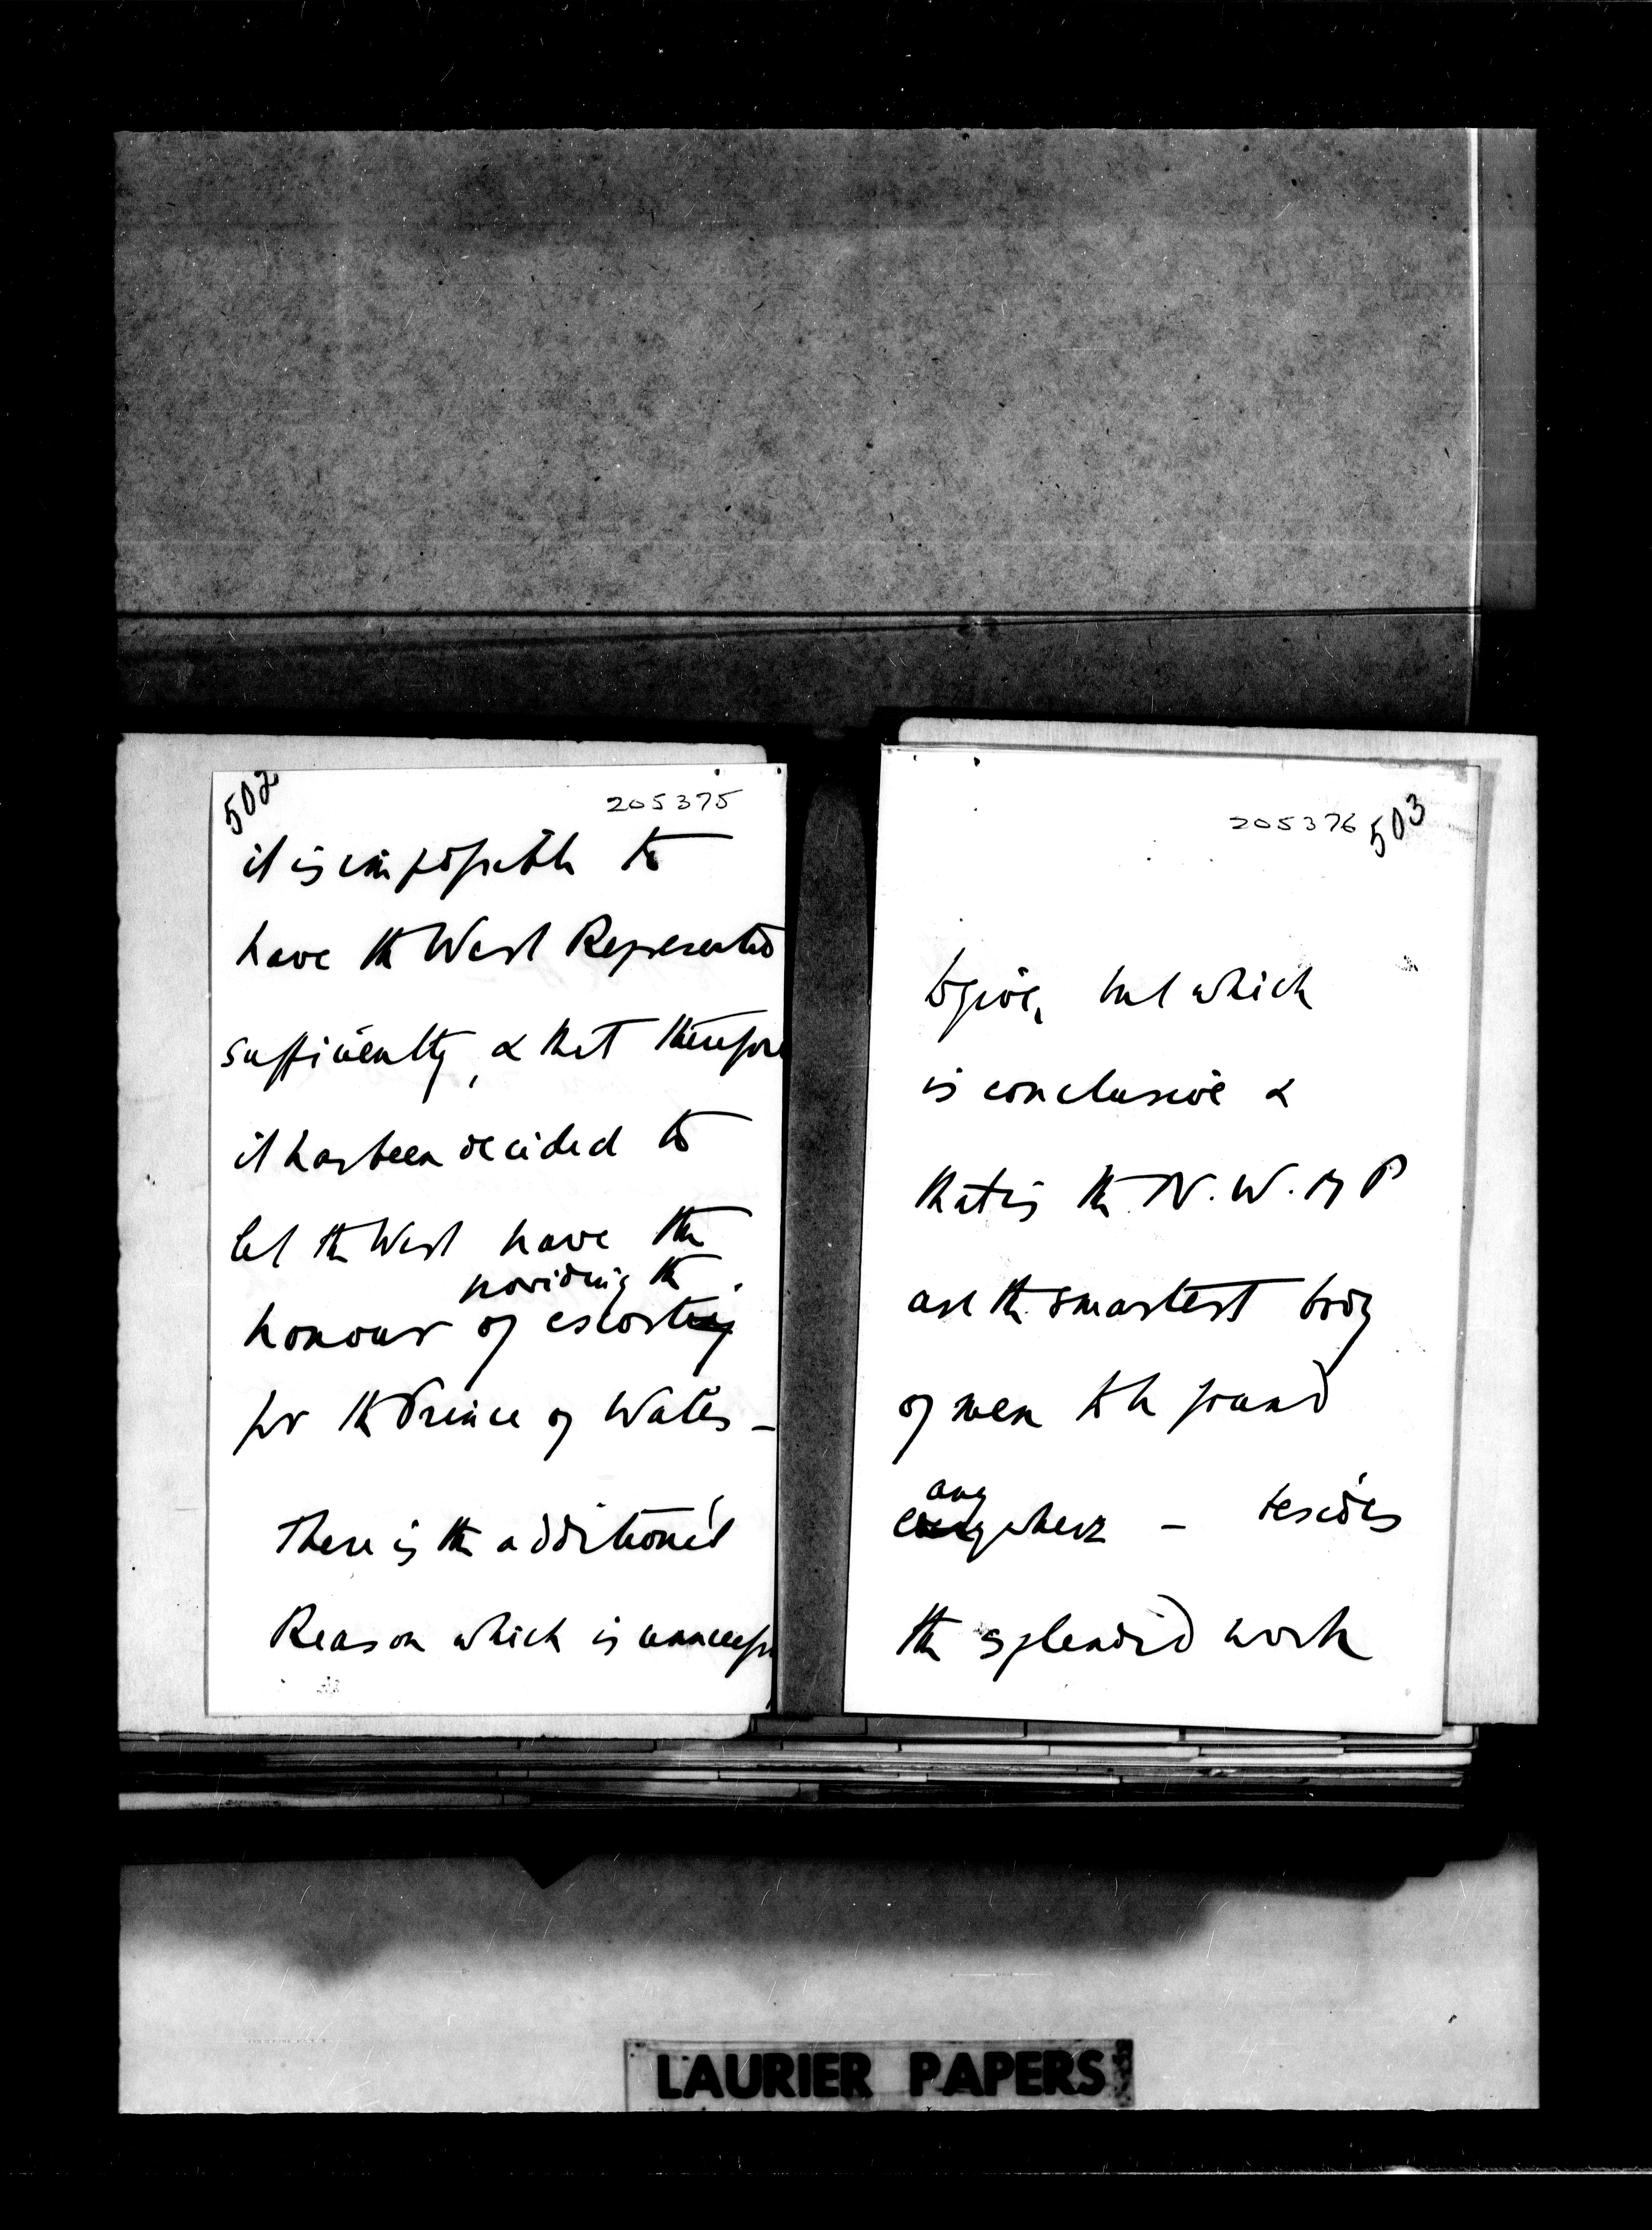 502
205375
it is impossible to
have the West Represented
sufficiently, & that therefore
it has been decided to
let the West have the
providing the
honour of escorting
for the Prince of Wales –
There is the additional
Reason which is unnecess
205376 503
to give, but which
is conclusive &
that is the N. W. M P
are the smartest body
of men to be found
any
everywhere – besides
the splendid work
LAURIER PAPERS